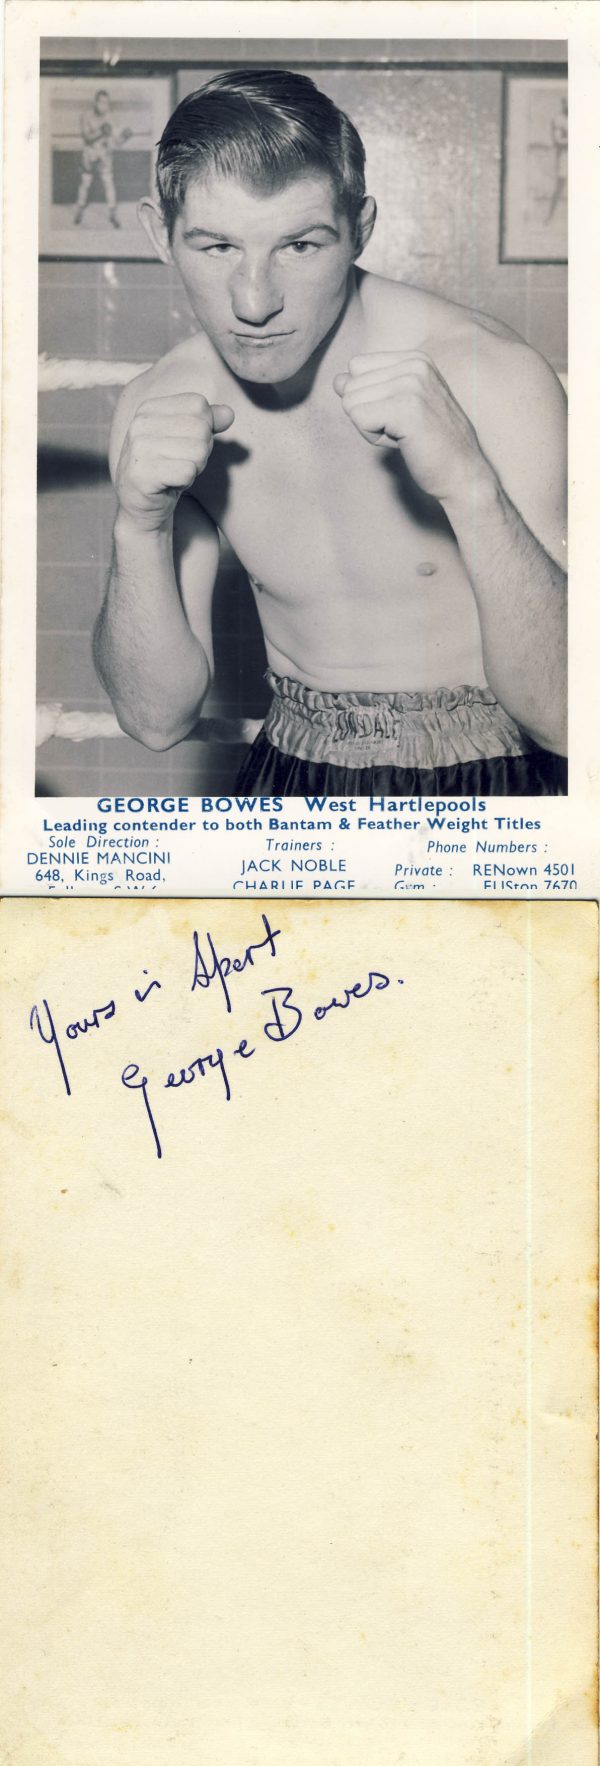 LONSDALE
GEORGE BOWES West Hartlepools
Leading contender to both Bantam & Feather Weight Titles
Sole Direction :
DENNIE MANCINI
648, Kings Road,
Trainers :
JACK NOBLE
CHARLIE PAGE
Phone Numbers :
Private : RENown 4501
Gym : EUSton 7670
Yours in Sport
George Bowes.